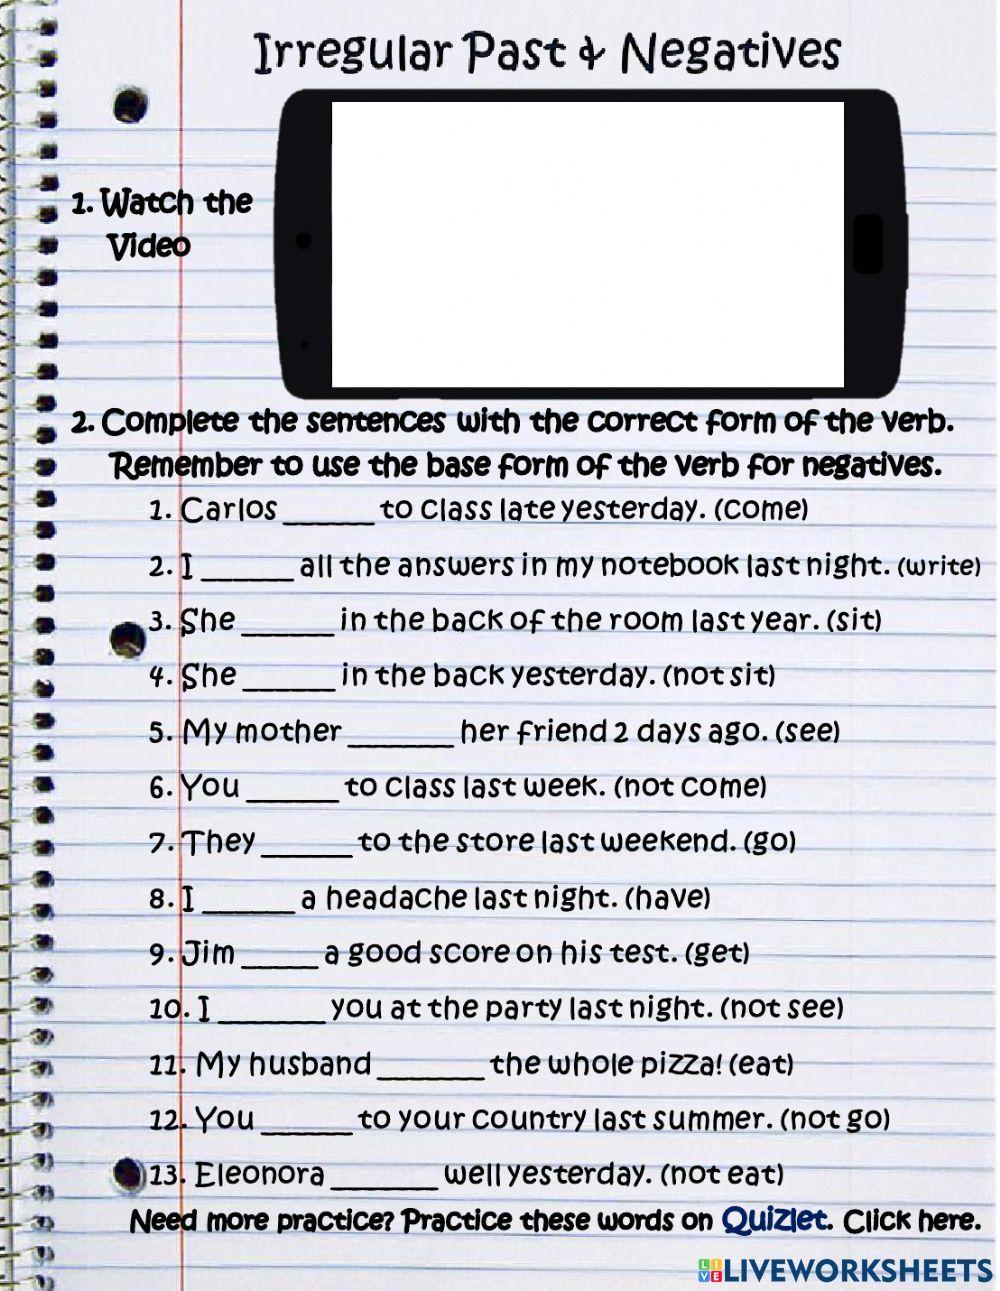 Irregular Past & Negatives
1. Watch the
Video
2. Complete the sentences with the correct form of the verb.
Remember to use the base form of the verb for negatives.
1. Carlos ______ to class late yesterday. (come)
2. I ______ all the answers in my notebook last night. (write)
3. She ______ in the back of the room last year. (sit)
4. She ______ in the back yesterday. (not sit)
5. My mother _______ her friend 2 days ago. (see)
6. You ______ to class last week. (not come)
7. They ______ to the store last weekend. (go)
8. I ______ a headache last night. (have)
9. Jim _____ a good score on his test. (get)
10. I _______ you at the party last night. (not see)
11. My husband _______ the whole pizza! (eat)
12. You ______ to your country last summer. (not go)
13. Eleonora _______ well yesterday. (not eat)
Need more practice? Practice these words on Quizlet. Click here.
LIVE LIVEWORKSHEETS